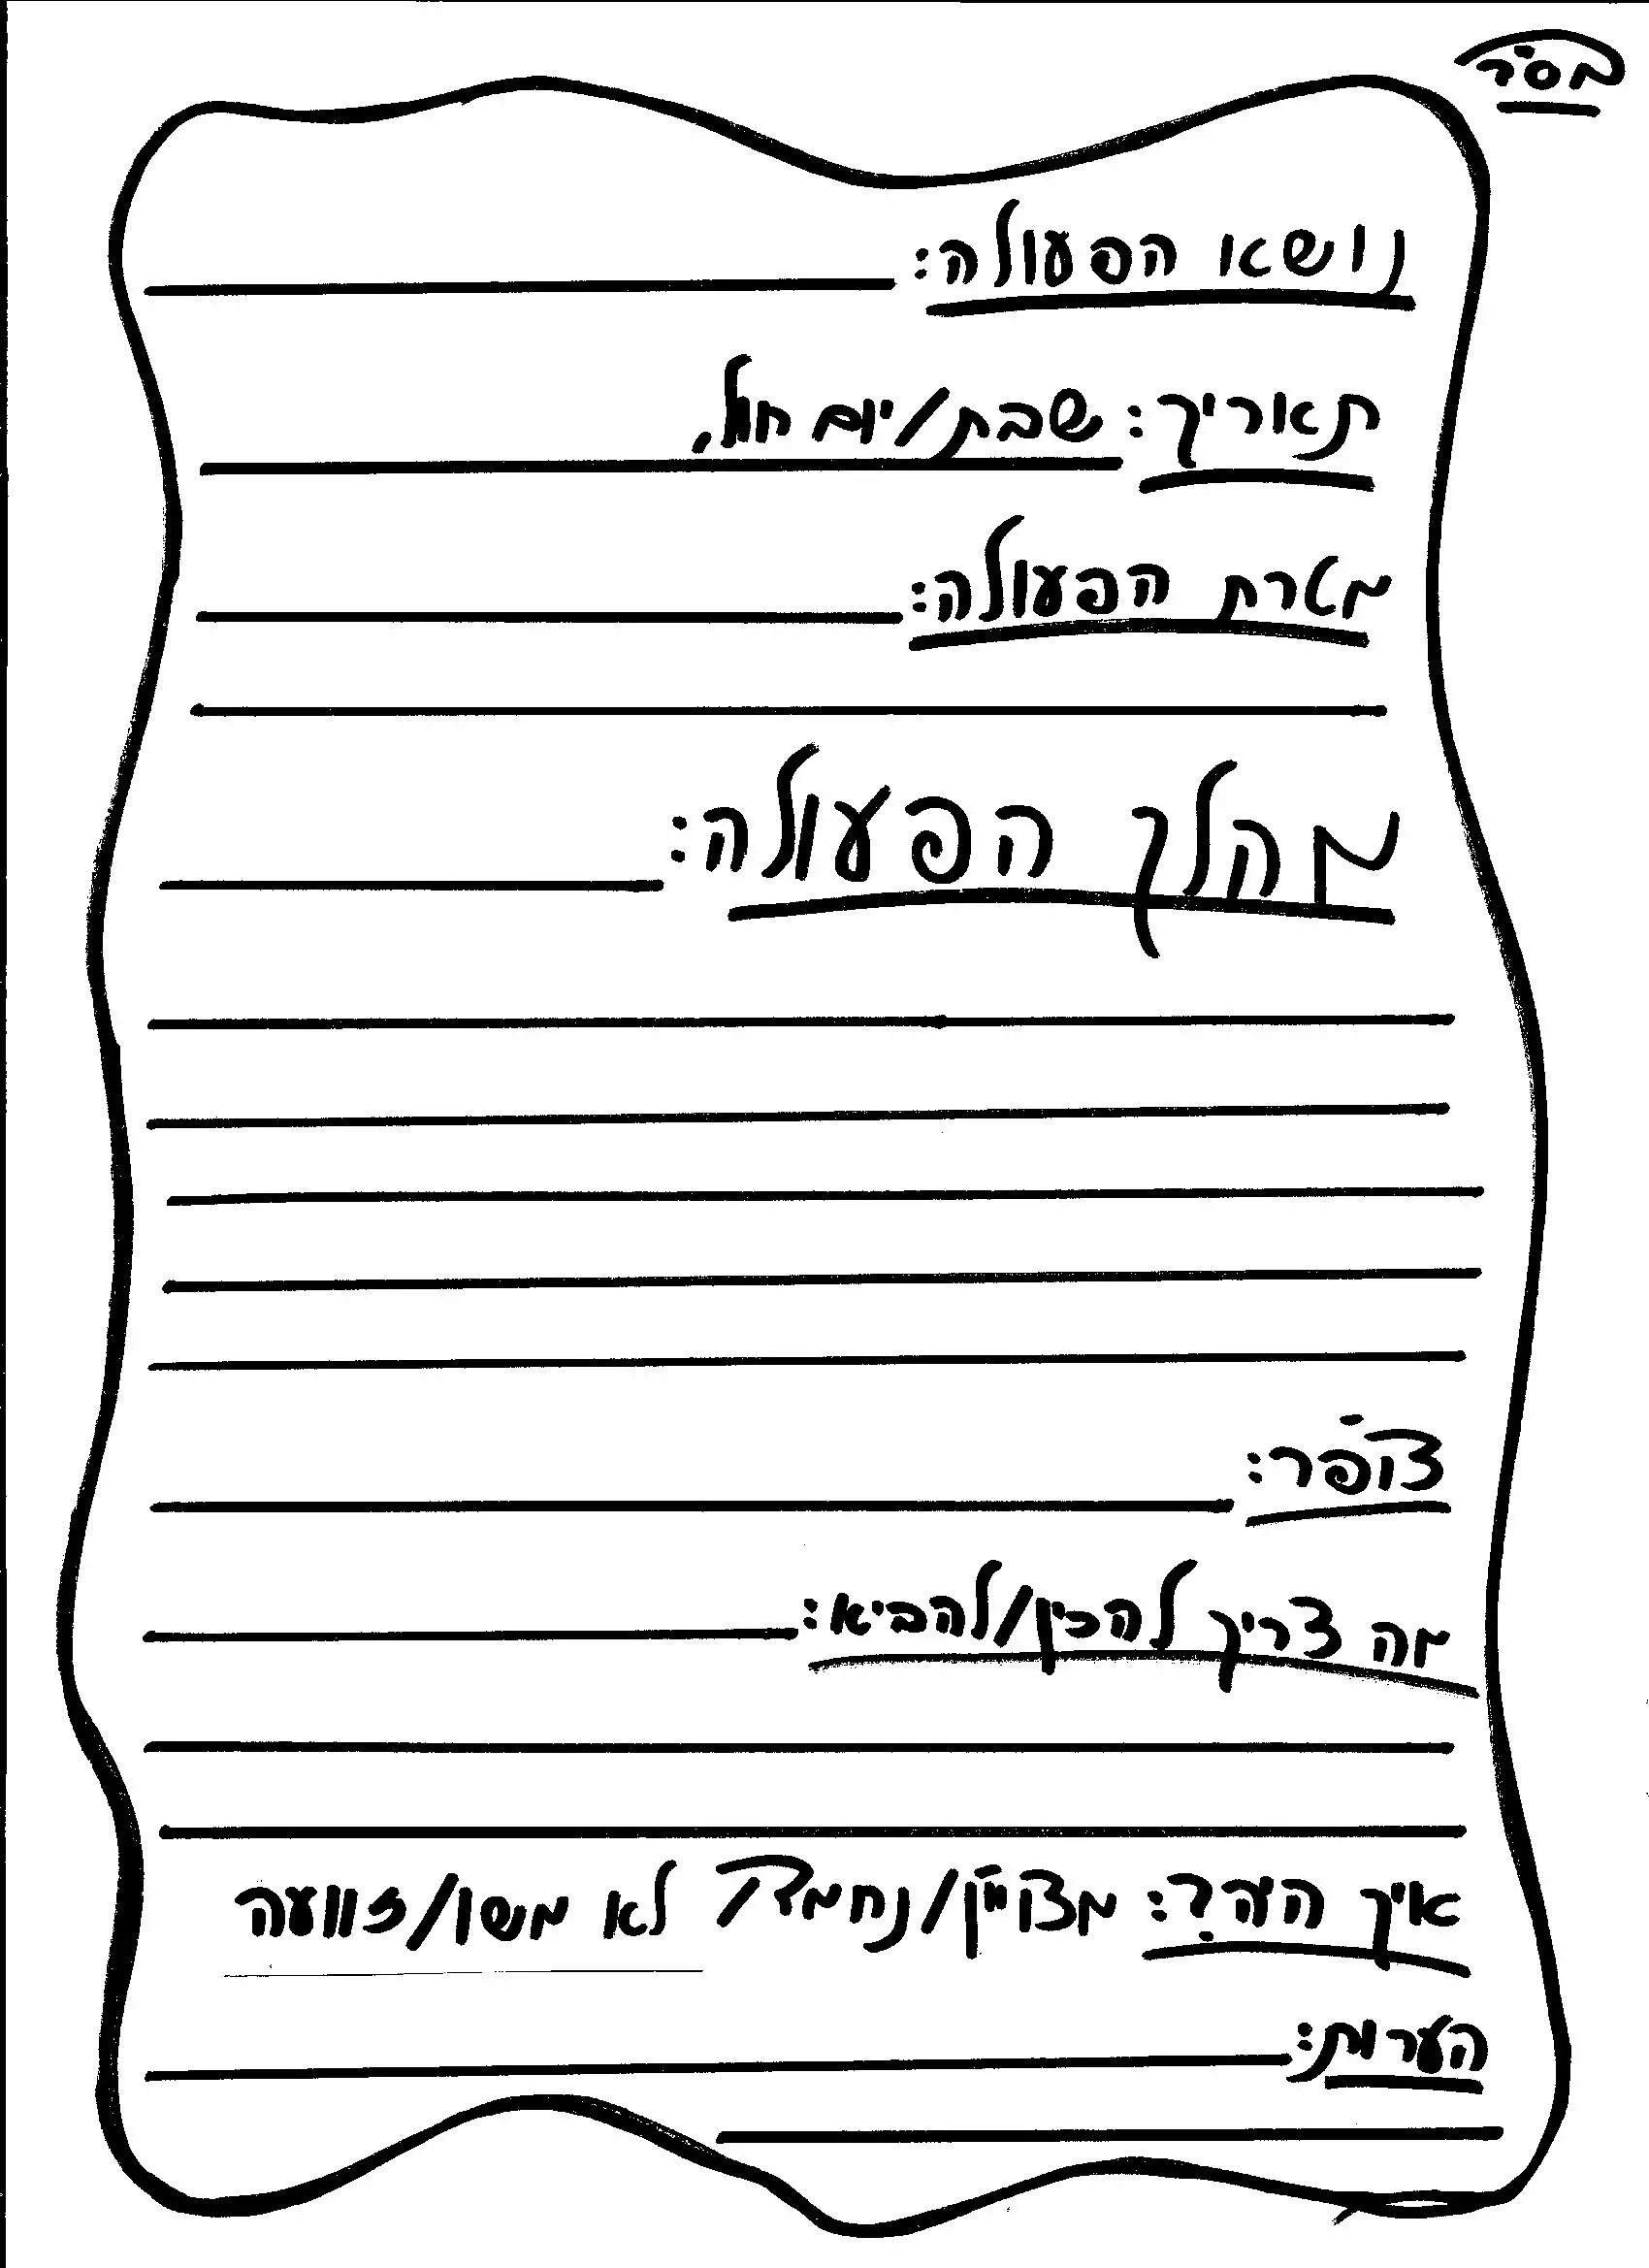 בס"ד
נושא הפעולה:
תאריך: שבת/יום חול.
מטרת הפעולה:
מהלך הפעולה:
צ'ופר:
מה צריך להכין/להביא:
איך הלך?: מצויין/נחמד/ לא משו/זוועה
הערות: